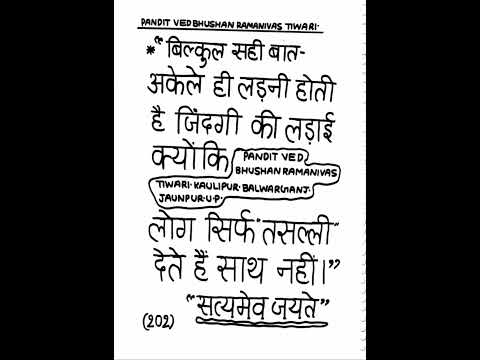 PANDIT VEDBHUSHAN RAMANIVAS TIWARI.
*“बिल्कुल सही बात-
अकेले ही लड़नी होती
है जिंदगी की लड़ाई
क्योंकि PANDIT VED
BHUSHAN RAMANIVAS
TIWARI. KAULIPUR. BALWARGANJ.
JAUNPUR. U.P.
लोग सिर्फ “तसल्ली”
देते हैं साथ नहीं।”
“सत्यमेव जयते”
(202)